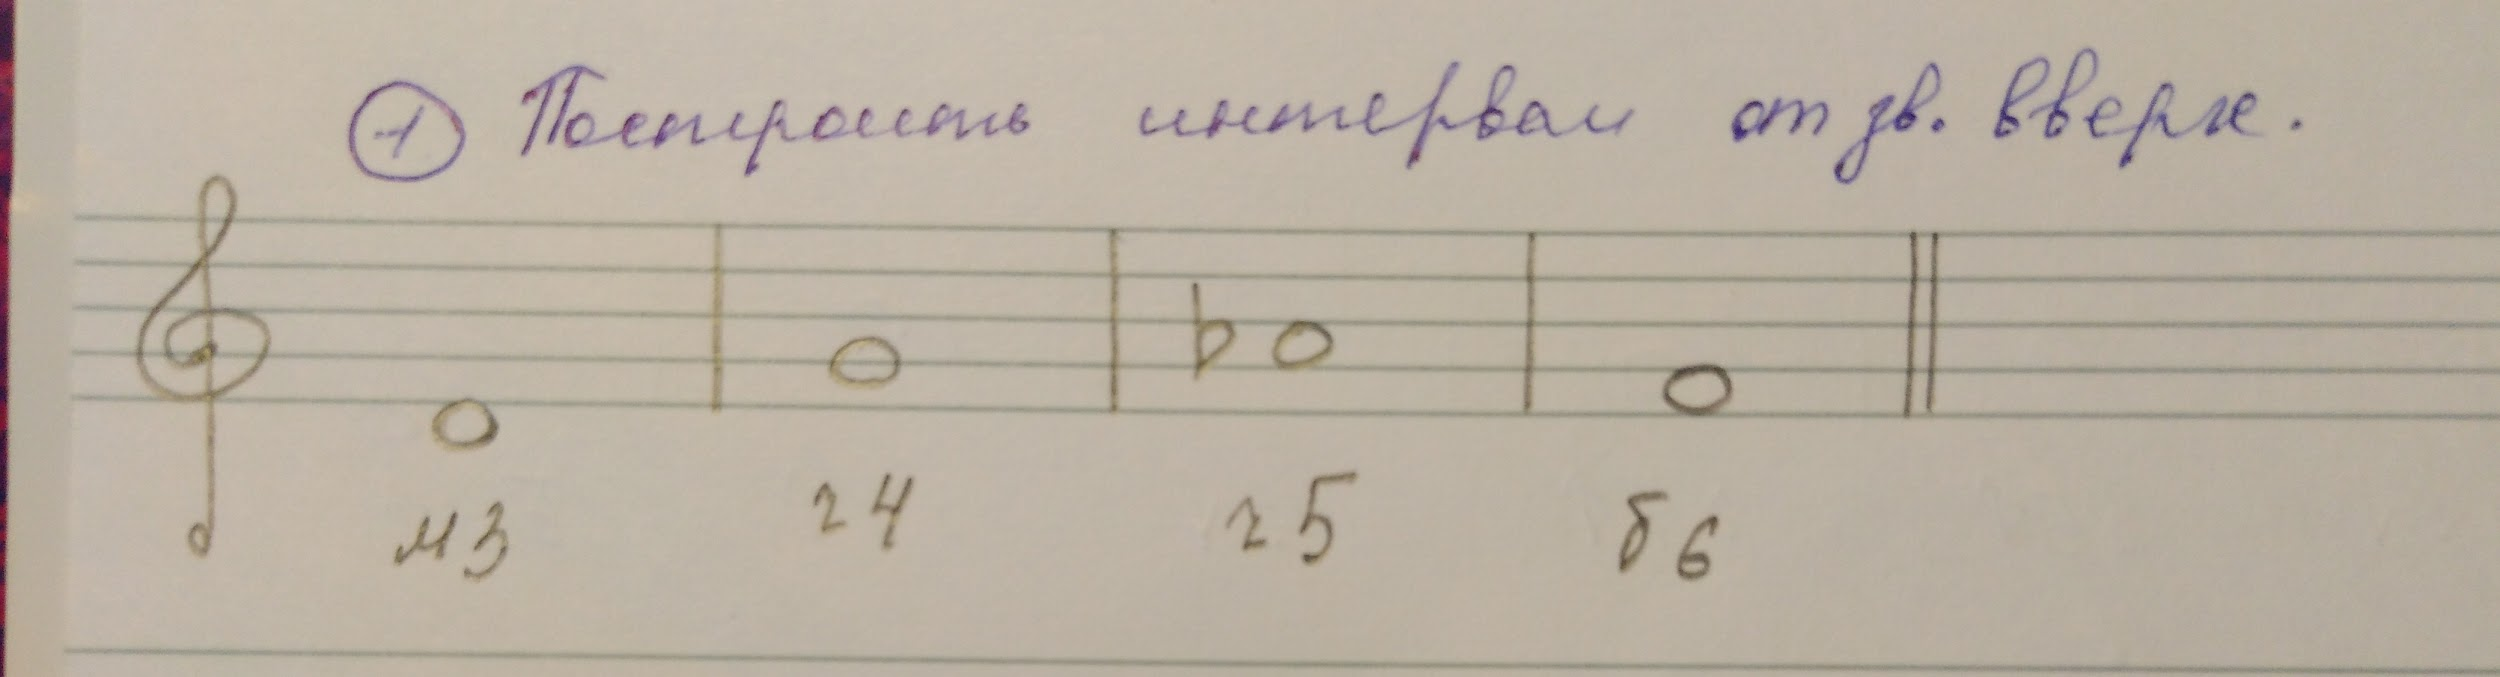 1 Построить интервалы от зв. вверх.
м3 ч4 ч5 б6